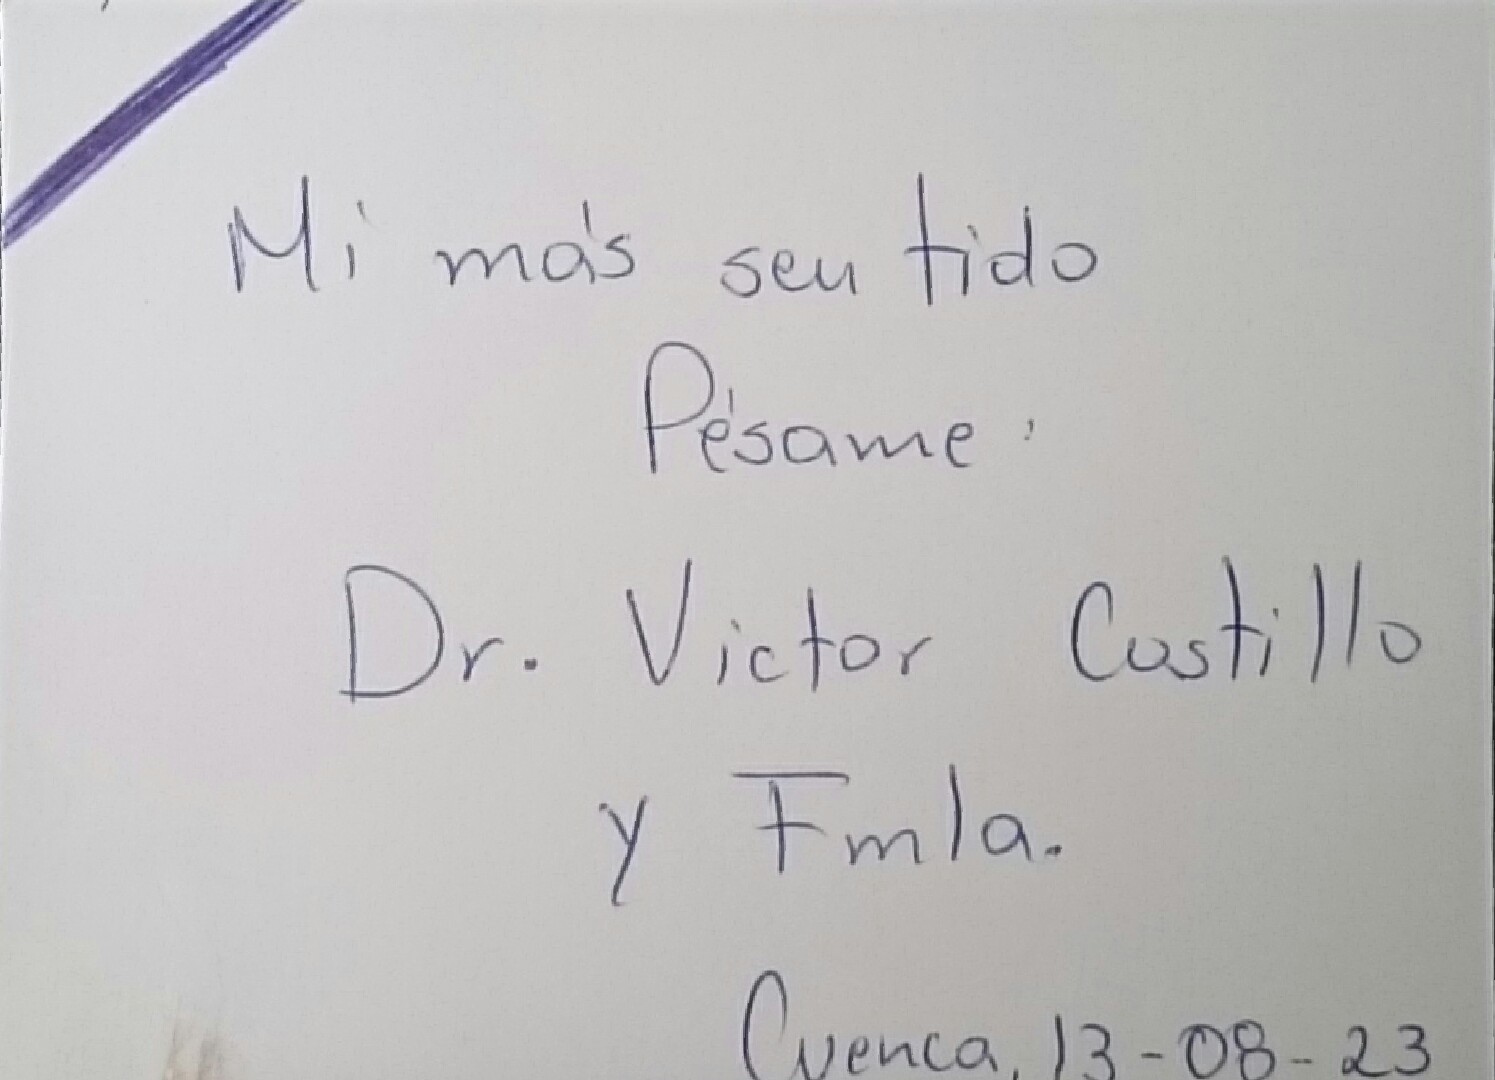 Mi más sentido
Pésame:
Dr. Victor Castillo
y Fmla.
Cuenca, 13-08-23